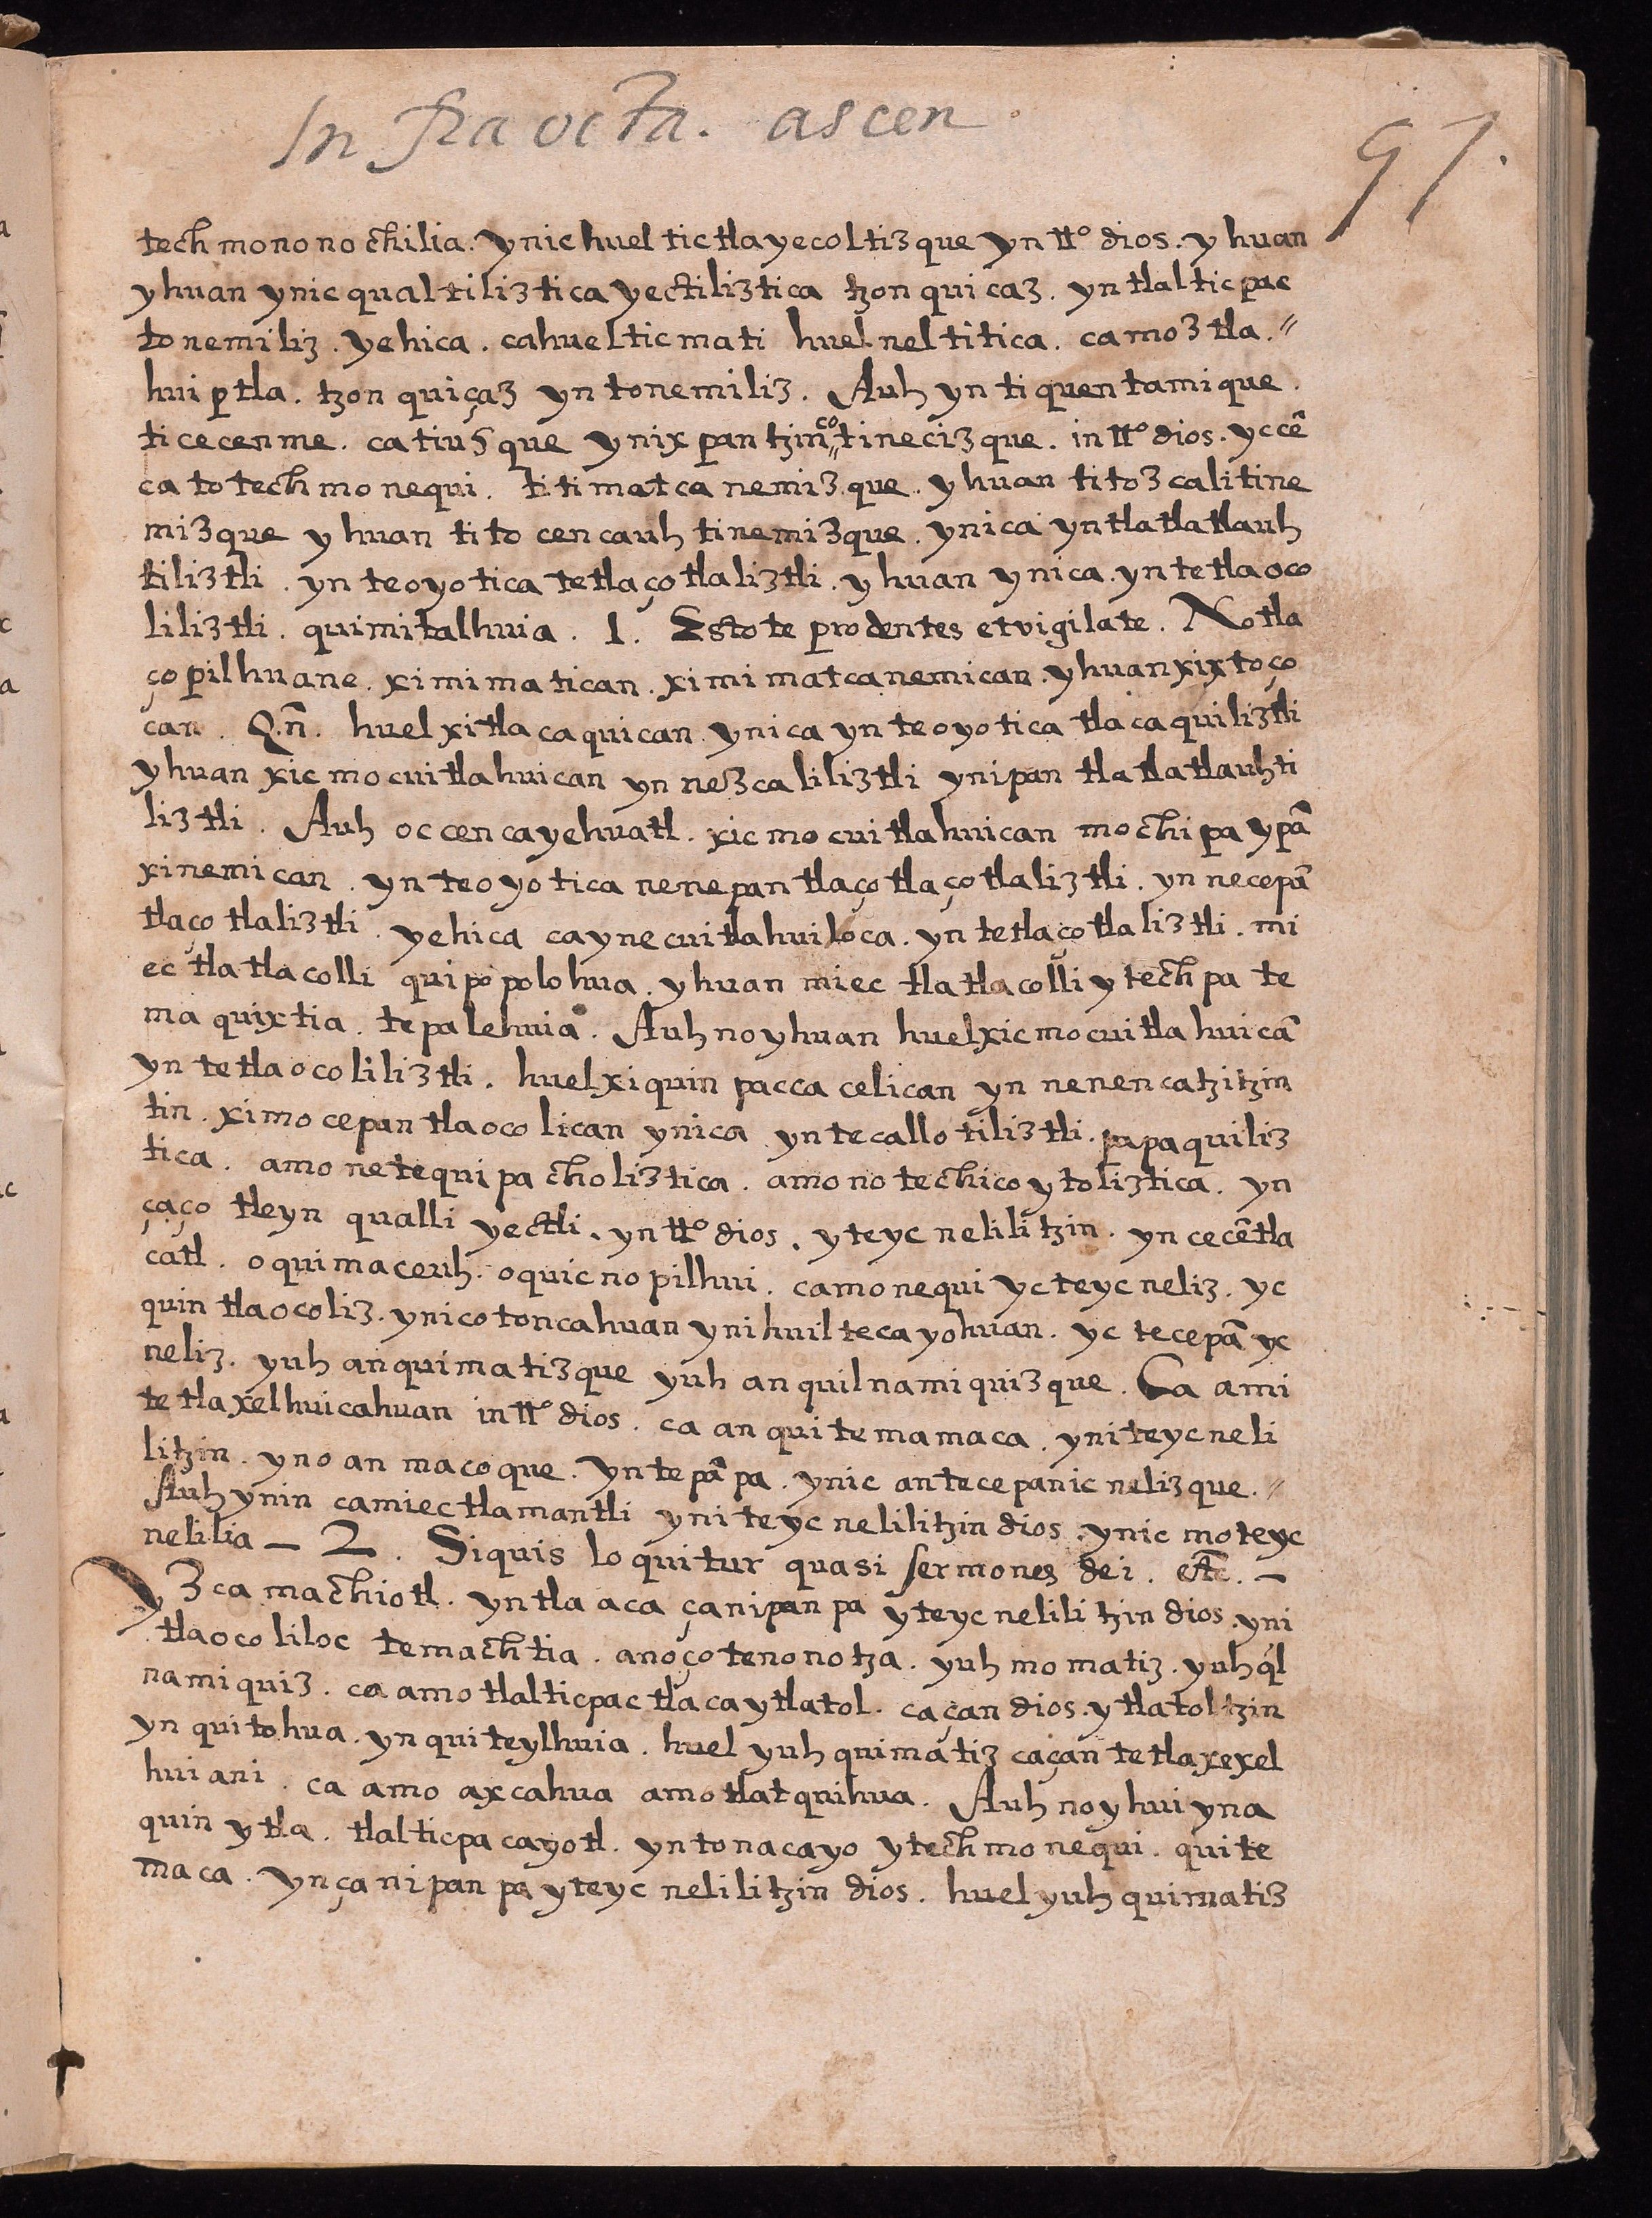 Infra octa. ascen
97.
tech monono chilia. ynic huel tictlayecoltizque yn tto dios. yhuan
yhuan ynic qualtiliztica yectiliztica tzon quicaz. yn tlalticpac
tonemiliz. yehica. cahuel ticmati huel neltitica. camoztla.〃
huiptla. tzon quiçaz yn tonemiliz. Auh yn tiquentamique.
ticecenme. catiusque ynixpantzinco tinecizque. in tto dios. yc cē
ca totech monequi. titimatcanemizque. yhuan titozcalitine
mizque yhuan titocencauhtinemizque. ynica yn tlatlatlauh
tiliztli. yn teoyotica tetlaçotlaliztli. yhuan ynica. yn tetlaoco
liliztli. quimitalhuia. 1. Estote prodentes et vigilate. Notla
çopilhuane. ximimatican. ximimatcanemican. yhuan xixtoço
can. Q.n̄. huel xitlacaquican. ynica yn teoyotica tlacaquiliztli
yhuan xicmocuitlahuican yn nezcaliliztli ynipan tlatlatlauhti
liztli. Auh occenca yehuatl. xicmocuitlahuican mochipa ypā
xinemican. yn teoyotica nenepantlaçotlaçotlaliztli. yn necepā
tlaçotlaliztli. yehica ca ynecuitlahuiloca. yn tetlaçotlaliztli. mi
ec tlatlacolli quipopolohua. yhuan miec tlatlacolli ytechpa te
maquixtia. tepalehuia. Auh no yhuan huel xicmocuitlahuicā
yn tetlaocoliliztli. huel xiquinpaccacelican yn nenencatzitzin
tin. ximocepantlaocolican ynica yn tecallotiliztli. papaquiliz
tica. amo netequipacholiztica. amo no techicoytoliztica. yn
çaço tleyn qualli yectli. yn tto dios. yteycnelilitzin. yn cecētla
catl. oquimaceuh. oquicnopilhui. camonequi yc teycneliz. yc
quintlaocoliz. ynicotoncahuan ynihuiltecayohuan. yc tecepāyc
neliz. yuh anquimatizque yuh anquilnamiquizque. Ca ami
tetlaxelhuicahuan in tto dios. ca anquitemamaca. yniteycneli
litzin. yno anmacoque. yn tepāpa. ynic antecepanicnelizque.〃
Auh ynin camiectlamantli yniteycnelilitzin dios. ynic moteyc
nelilia — 2. Siquis loquitur quasi sermones dei. etc. —
Yzca machiotl. yntla aca çanipanpa yteycnelilitzin dios. yni
tlaocoliloc temachtia. anoço tenonotza. yuh momatiz. yuh q́l
namiquiz. ca amo tlalticpac tlaca ytlatol. caçan dios. ytlatoltzin
yn quitohua. yn quiteylhuia. huel yuh quimatiz caçan tetlaxexel
huiani. ca amo axcahua amo tlatquihua. Auh no yhui yna
quin ytla. tlalticpacayotl. yn tonacayo ytech monequi. quite
maca. yn çanipanpa yteycnelilitzin dios. huel yuh quimatiz